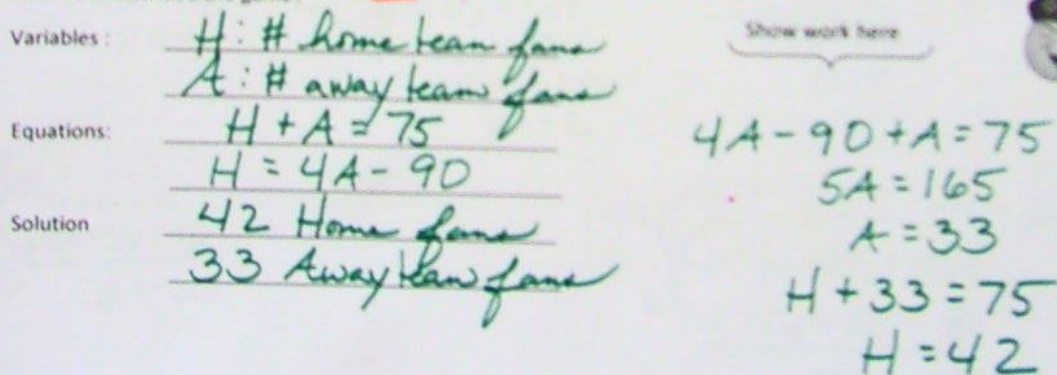 Variables :
H : # home team fans
A : # away team fans
Equations:
H + A = 75
H = 4A - 90
Solution
42 Home fans
33 Away team fans
Show work here
4A - 90 + A = 75
5A = 165
A = 33
H + 33 = 75
H = 42